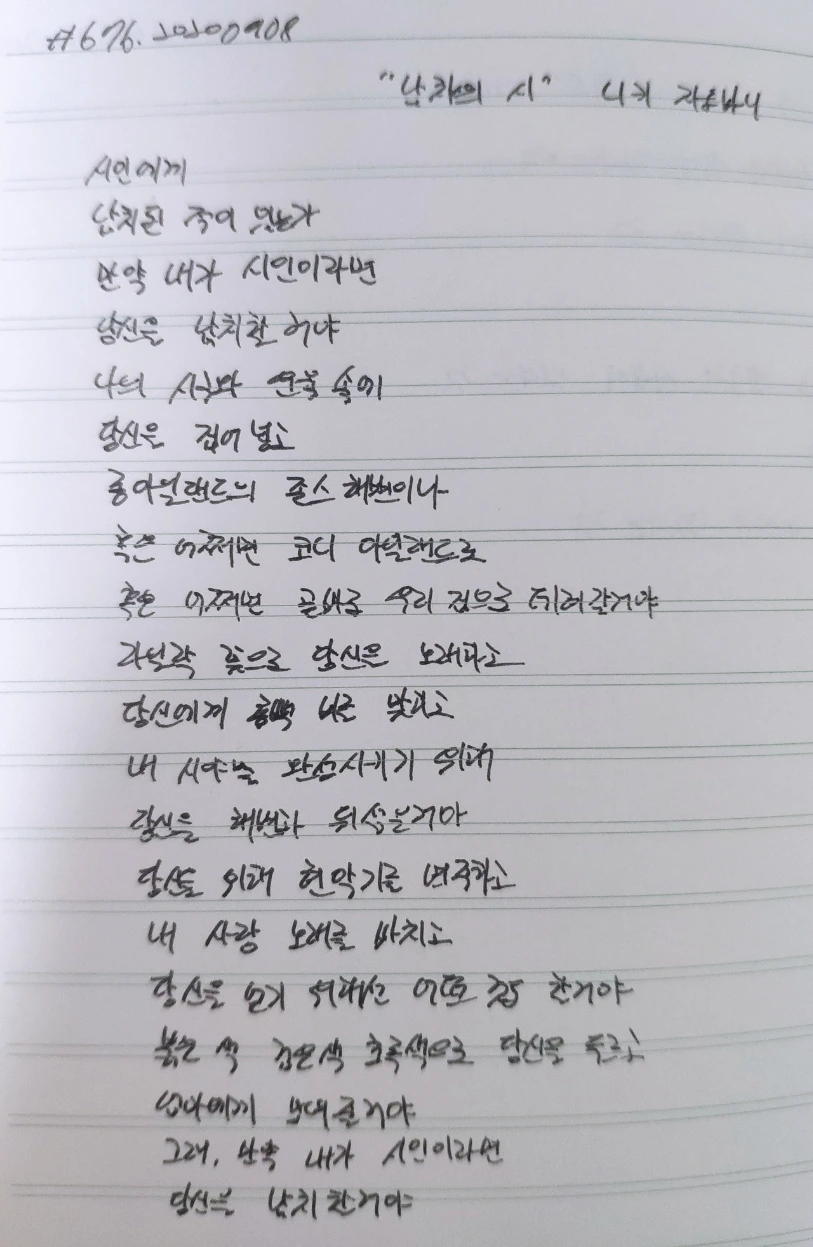 #676. 20200908
"납치의 시" 니키 지오바니
시인에게
납치된 적이 있는가
만약 내가 시인이라면
당신을 납치할 거야
나의 시구와 운율 속에
당신은 집어 넣고
롱아일랜드의 존스 해변이나
혹은 어쩌면 코니 아일랜드로
혹은 어쩌면 곧바로 우리 집으로 데려갈거야
라일락 꽃으로 당신은 노래하고
당신에게 흠뻑 비를 맞히고
내 시야를 완성시키기 위해
당신을 해변과 뒤섞을거야
당신을 위해 현악기를 연주하고
내 사랑 노래를 바치고
당신을 얻기 위해선 어떤 것도 할거야
붉은 색 검은색 초록색으로 당신을 두르고
엄마에게 보여 줄거야
그래, 만약 내가 시인이라면
당신을 납치할거야